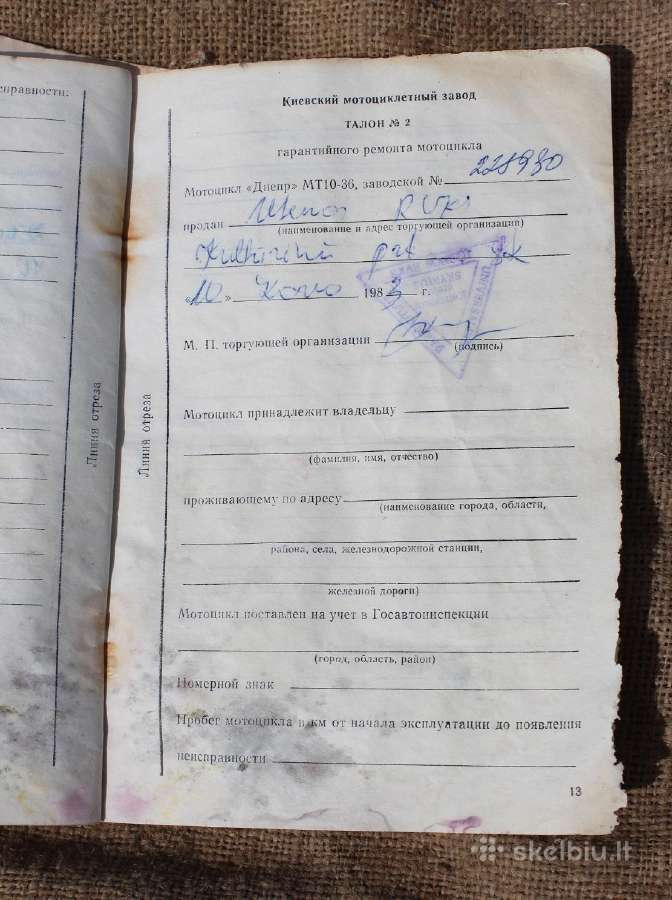 исправности:
Киевский мотоциклетный завод
ТАЛОН № 2
гарантийного ремонта мотоцикла
Мотоцикл «Днепр» МТ10-36, заводской № 228930
продан
(наименование и адрес торгующей организации)
«10» 1983 г.
М. П. торгующей организации
(подпись)
Мотоцикл принадлежит владельцу
(фамилия, имя, отчество)
проживающему по адресу
(наименование города, области,
района, села, железнодорожной станции,
железной дороги)
Мотоцикл поставлен на учет в Госавтоинспекции
(город, область, район)
Номерной знак
Пробег мотоцикла в км от начала эксплуатации до появления
неисправности
13
Линия отреза
Линия отреза
skelbiu.lt